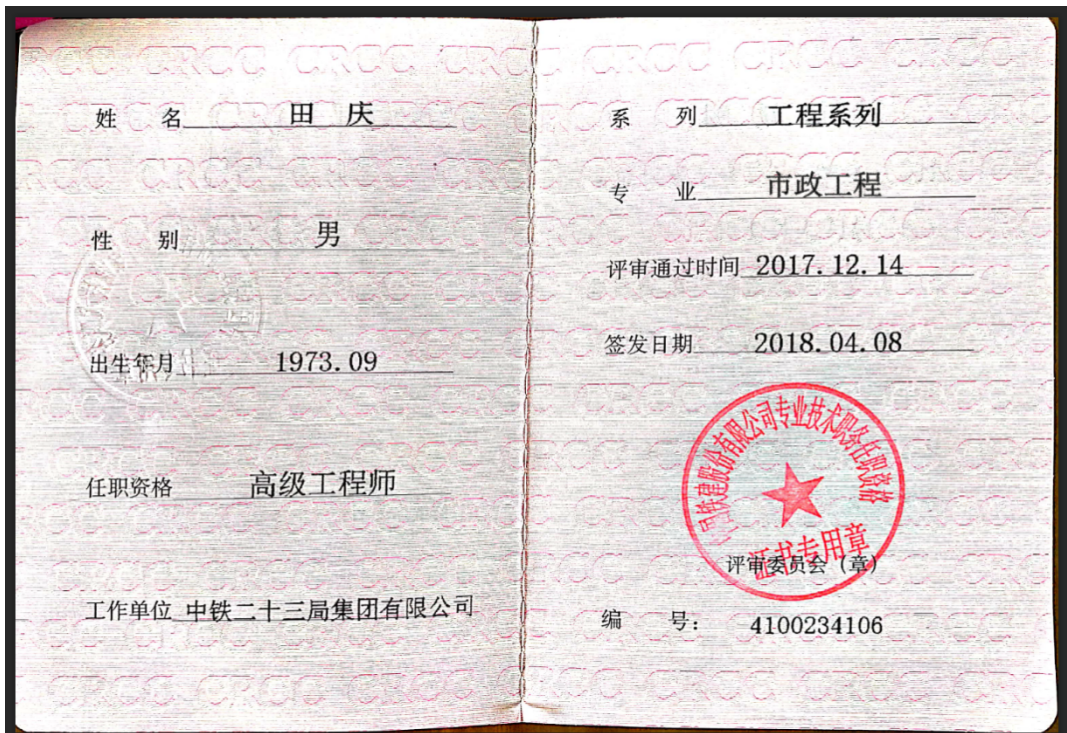 姓 名 田 庆
性 别 男
出生年月 1973.09
任职资格 高级工程师
工作单位 中铁二十三局集团有限公司
系 列 工程系列
专 业 市政工程
评审通过时间 2017.12.14
签发日期 2018.04.08
中国铁建股份有限公司专业技术职务任职资格
证书专用章
评审委员会(章)
编 号: 4100234106
CRCC